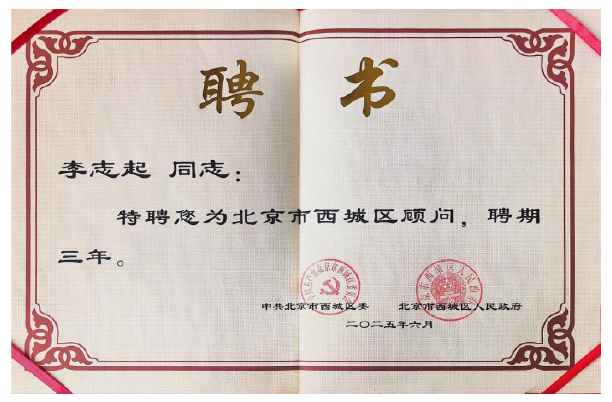 聘书
李志起 同志：
特聘您为北京市西城区顾问，聘期
三年。
中共北京市西城区委 北京市西城区人民政府
二〇二五年六月